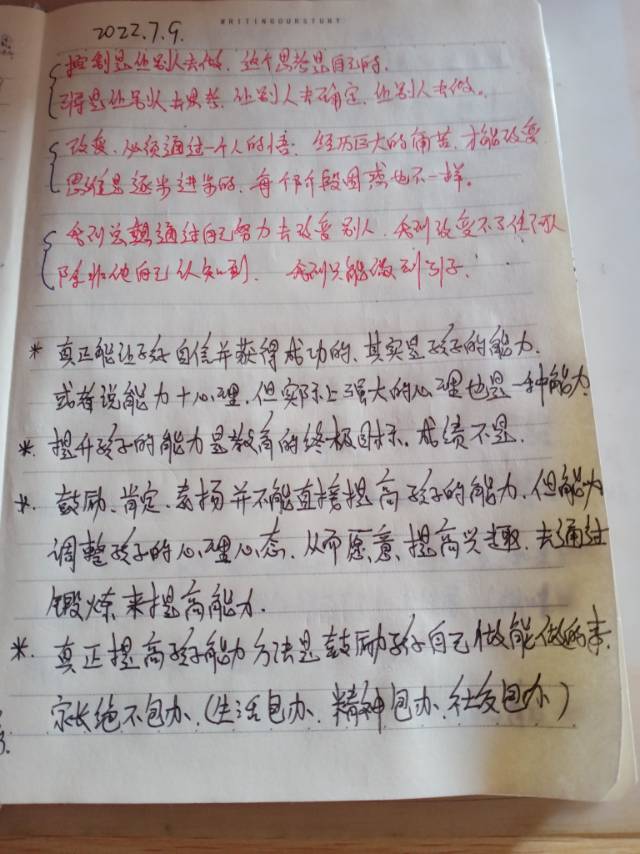 WRITINGOURSTORY
2022.7.9.
控制是让别人去做,这个思考是自己的。
引导是让别人去思考,让别人去确定,让别人去做。
改变,必须通过一个人的悟;经历巨大的痛苦,才能改变
思维是逐步进步的,每个阶段困惑也不一样。
我们总想通过自己努力去改变别人,我们改变不了任何人
除非他自己认知到,我们只能做到引子。
* 真正能让孩子自信并获得成功的,其实是孩子的能力,
或者说能力+心理,但实际上强大的心理也是一种能力
* 提升孩子的能力是教育的终极目标,成绩不是.
* 鼓励、肯定、表扬并不能直接提高孩子的能力,但能为
调整孩子的心理心态,从而愿意、提高兴趣,去通过
锻炼来提高能力.
* 真正提高孩子能力方法是鼓励孩子自己做能做的事,
家长绝不包办,(生活包办、精神包办、社交包办)